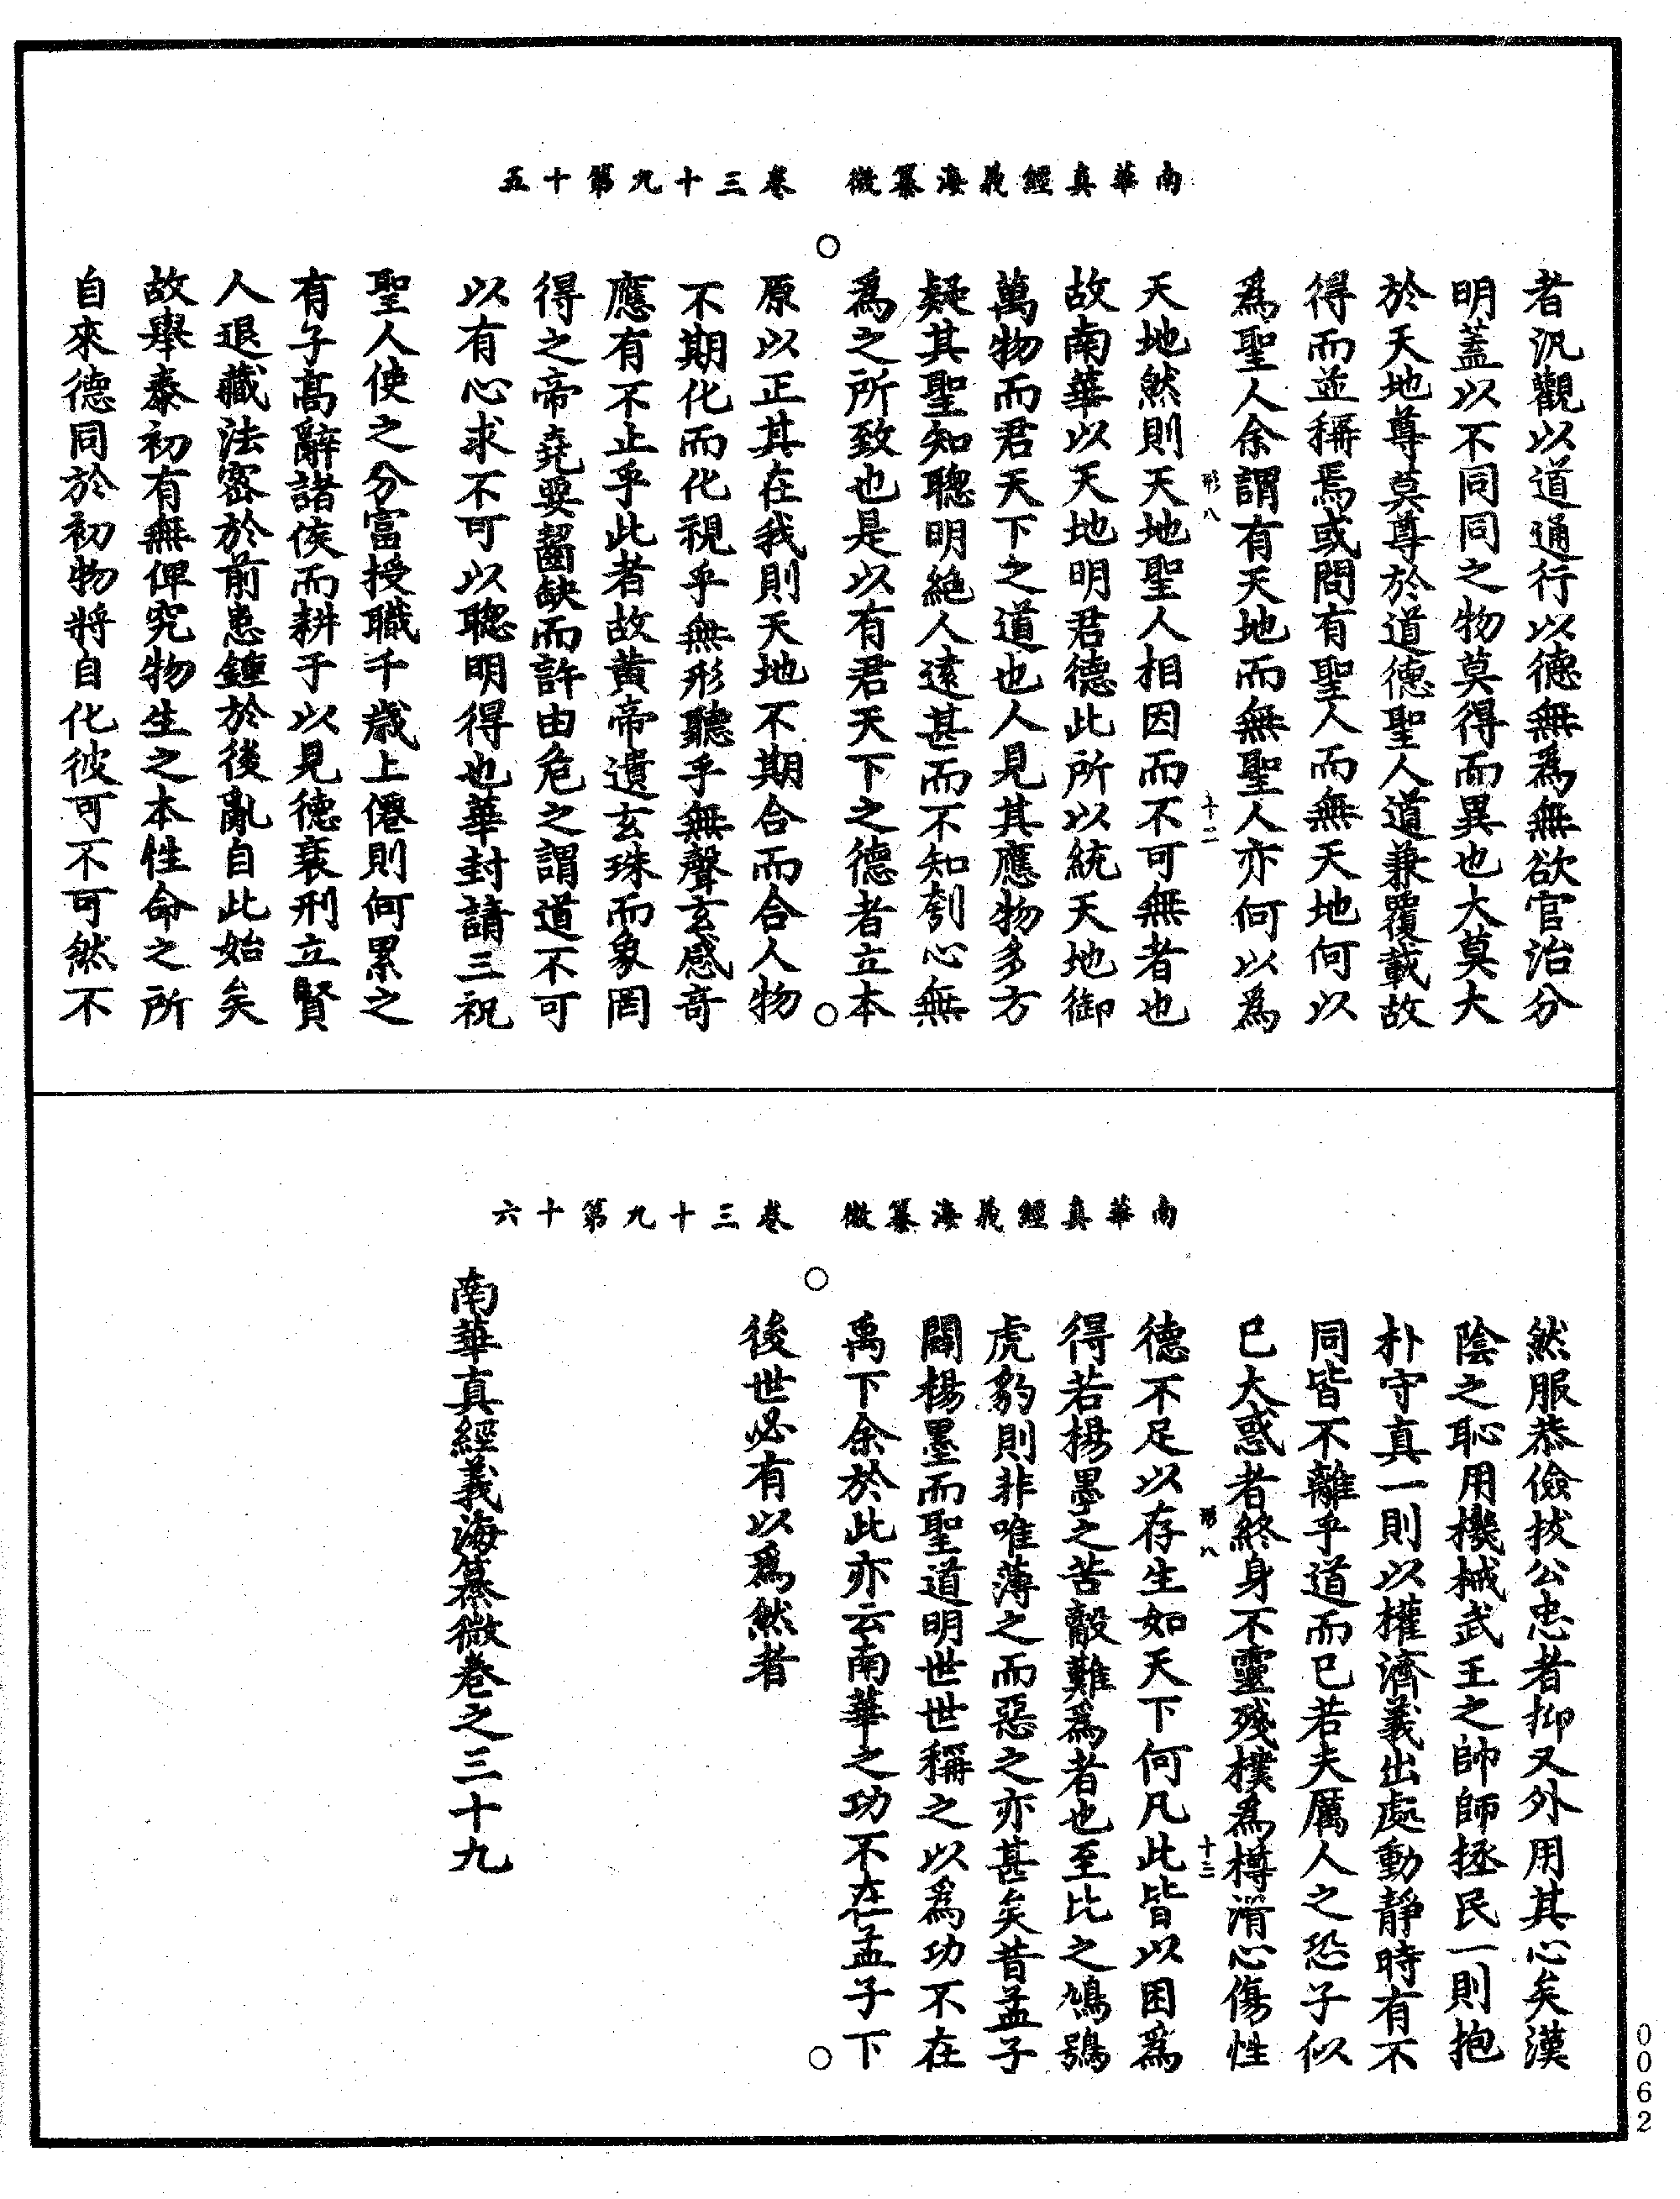 南華真經義海纂微　卷三十九第十五
者汎觀以道通行以德無為無欲官治分
明蓋以不同同之物莫得而異也大莫大
於天地尊莫尊於道德聖人道兼覆載故
得而並稱焉或問有聖人而無天地何以
為聖人余謂有天地而無聖人亦何以為
形八　十二
天地然則天地聖人相因而不可無者也
故南華以天地明君德此所以統天地御
萬物而君天下之道也人見其應物多方
疑其聖知聰明絕人遠甚而不知刳心無
為之所致也是以有君天下之德者立本
原以正其在我則天地不期合而合人物
不期化而化視乎無形聽乎無聲玄感奇
應有不止乎此者故黃帝遺玄珠而象罔
得之帝堯要齧缺而許由危之謂道不可
以有心求不可以聰明得也華封請三祝
聖人使之分富授職千歲上僊則何累之
有子高辭諸侯而耕于以見德衰刑立賢
人退藏法密於前患鍾於後亂自此始矣
故舉泰初有無俾究物生之本性命之所
自來德同於初物將自化彼可不可然不
南華真經義海纂微　卷三十九第十六
然服恭儉拔公忠者抑又外用其心矣漢
陰之恥用機械武王之帥師拯民一則抱
朴守真一則以權濟義出處動靜時有不
同皆不離乎道而已若夫厲人之恐子似
已大惑者終身不靈殘樸為樽滑心傷性
形八　十三
德不足以存生如天下何凡此皆以困為
得若楊墨之苦觳難為者也至比之鳩鴞
虎豹則非唯薄之而惡之亦甚矣昔孟子
闢楊墨而聖道明世世稱之以為功不在
禹下余於此亦云南華之功不在孟子下
後世必有以為然者
南華真經義海纂微卷之三十九
0062